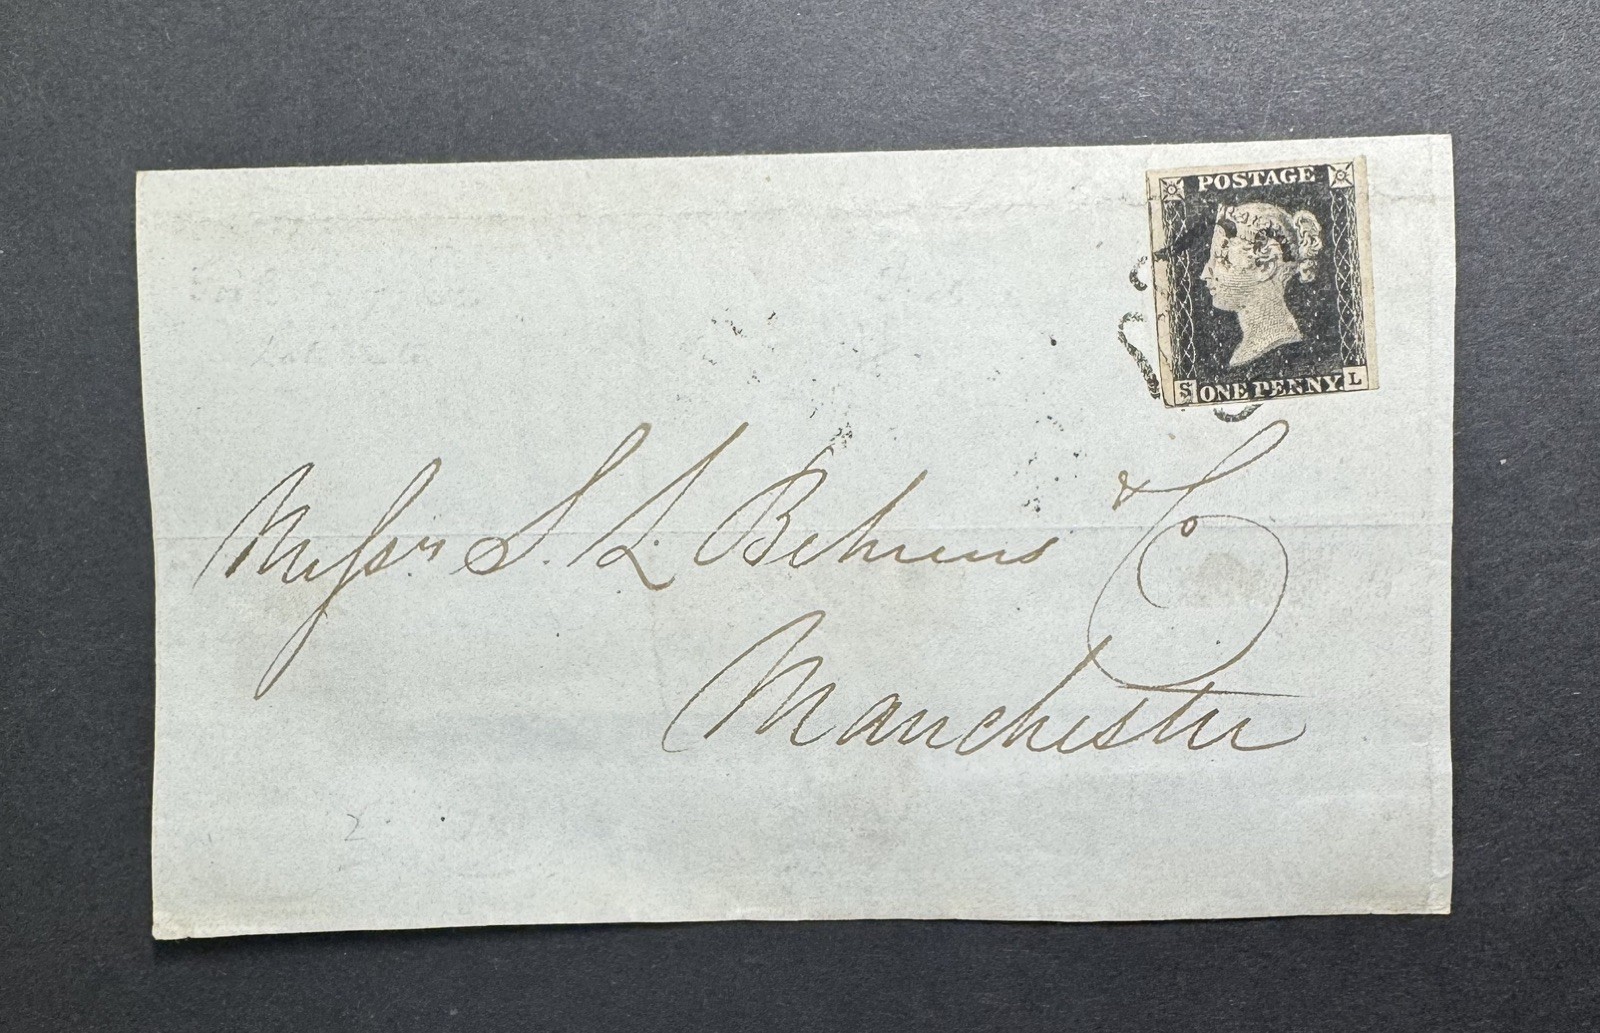 POSTAGE
S ONE PENNY L
Messrs S. L. Behrens & Co
Manchester
2